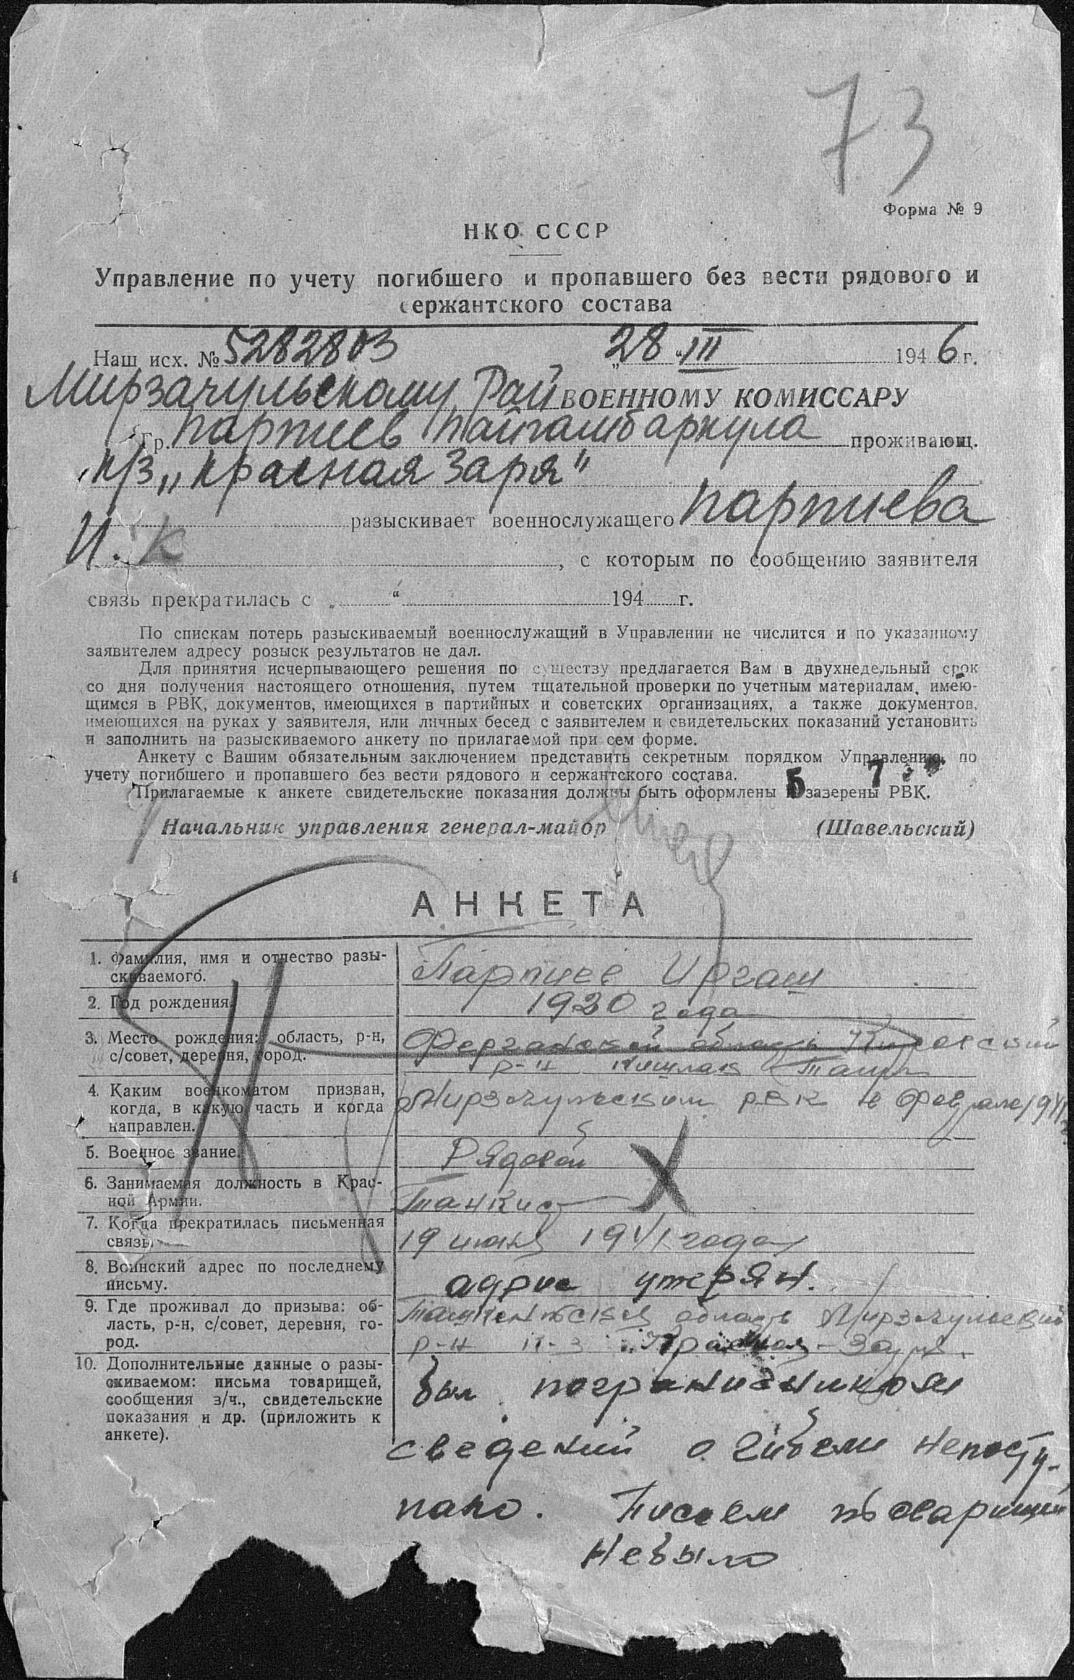 73
Форма № 9
НКО СССР
Управление по учету погибшего и пропавшего без вести рядового и
сержантского состава
Наш исх. № 5282803 „28 III 1946 г.
Мирзачульскому Рай ВОЕННОМУ КОМИССАРУ
Гр. Парпиев Пайгамбаркула проживающ.
к/з „Красная Заря"
разыскивает военнослужащего Парпиева
И. К , с которым по сообщению заявителя
связь прекратилась с „ " 194 г.
По спискам потерь разыскиваемый военнослужащий в Управлении не числится и по указанному
заявителем адресу розыск результатов не дал.
Для принятия исчерпывающего решения по существу предлагается Вам в двухнедельный срок
со дня получения настоящего отношения, путем тщательной проверки по учетным материалам, имею-
щимся в РВК, документов, имеющихся в партийных и советских организациях, а также документов,
имеющихся на руках у заявителя, или личных бесед с заявителем и свидетельских показаний установить
и заполнить на разыскиваемого анкету по прилагаемой при сем форме.
Анкету с Вашим обязательным заключением представить секретным порядком Управлению по
учету погибшего и пропавшего без вести рядового и сержантского состава. 7
Прилагаемые к анкете свидетельские показания должны быть оформлены 5 заверены РВК.
Начальник управления генерал-майор (Шавельский)
АНКЕТА
1. Фамилия, имя и отчество разы-
скиваемого. Парпиев Иргаш
2. Год рождения. 1920 года
3. Место рождения: область, р-н, Ферганской область Кировский
с/совет, деревня, город. р-н кишлак
4. Каким военкоматом призван, Мирзачульским РВК в феврале 1941
когда, в какую часть и когда
направлен.
5. Военное звание. Рядовой
6. Занимаемая должность в Крас-
ной Армии. Танкист
7. Когда прекратилась письменная
связь. 19 июня 1941 года
8. Воинский адрес по последнему
письму. адрис утерян.
9. Где проживал до призыва: об- Ташкентская область Мирзачульский
ласть, р-н, с/совет, деревня, го- р-н к-з Красная-Заря
род.
10. Дополнительные данные о разы- был пограничником
скиваемом: письма товарищей,
сообщения з/ч., свидетельские
показания и др. (приложить к
анкете).
сведений о гибели непосту-
пало. Писем товарищей
Небыло